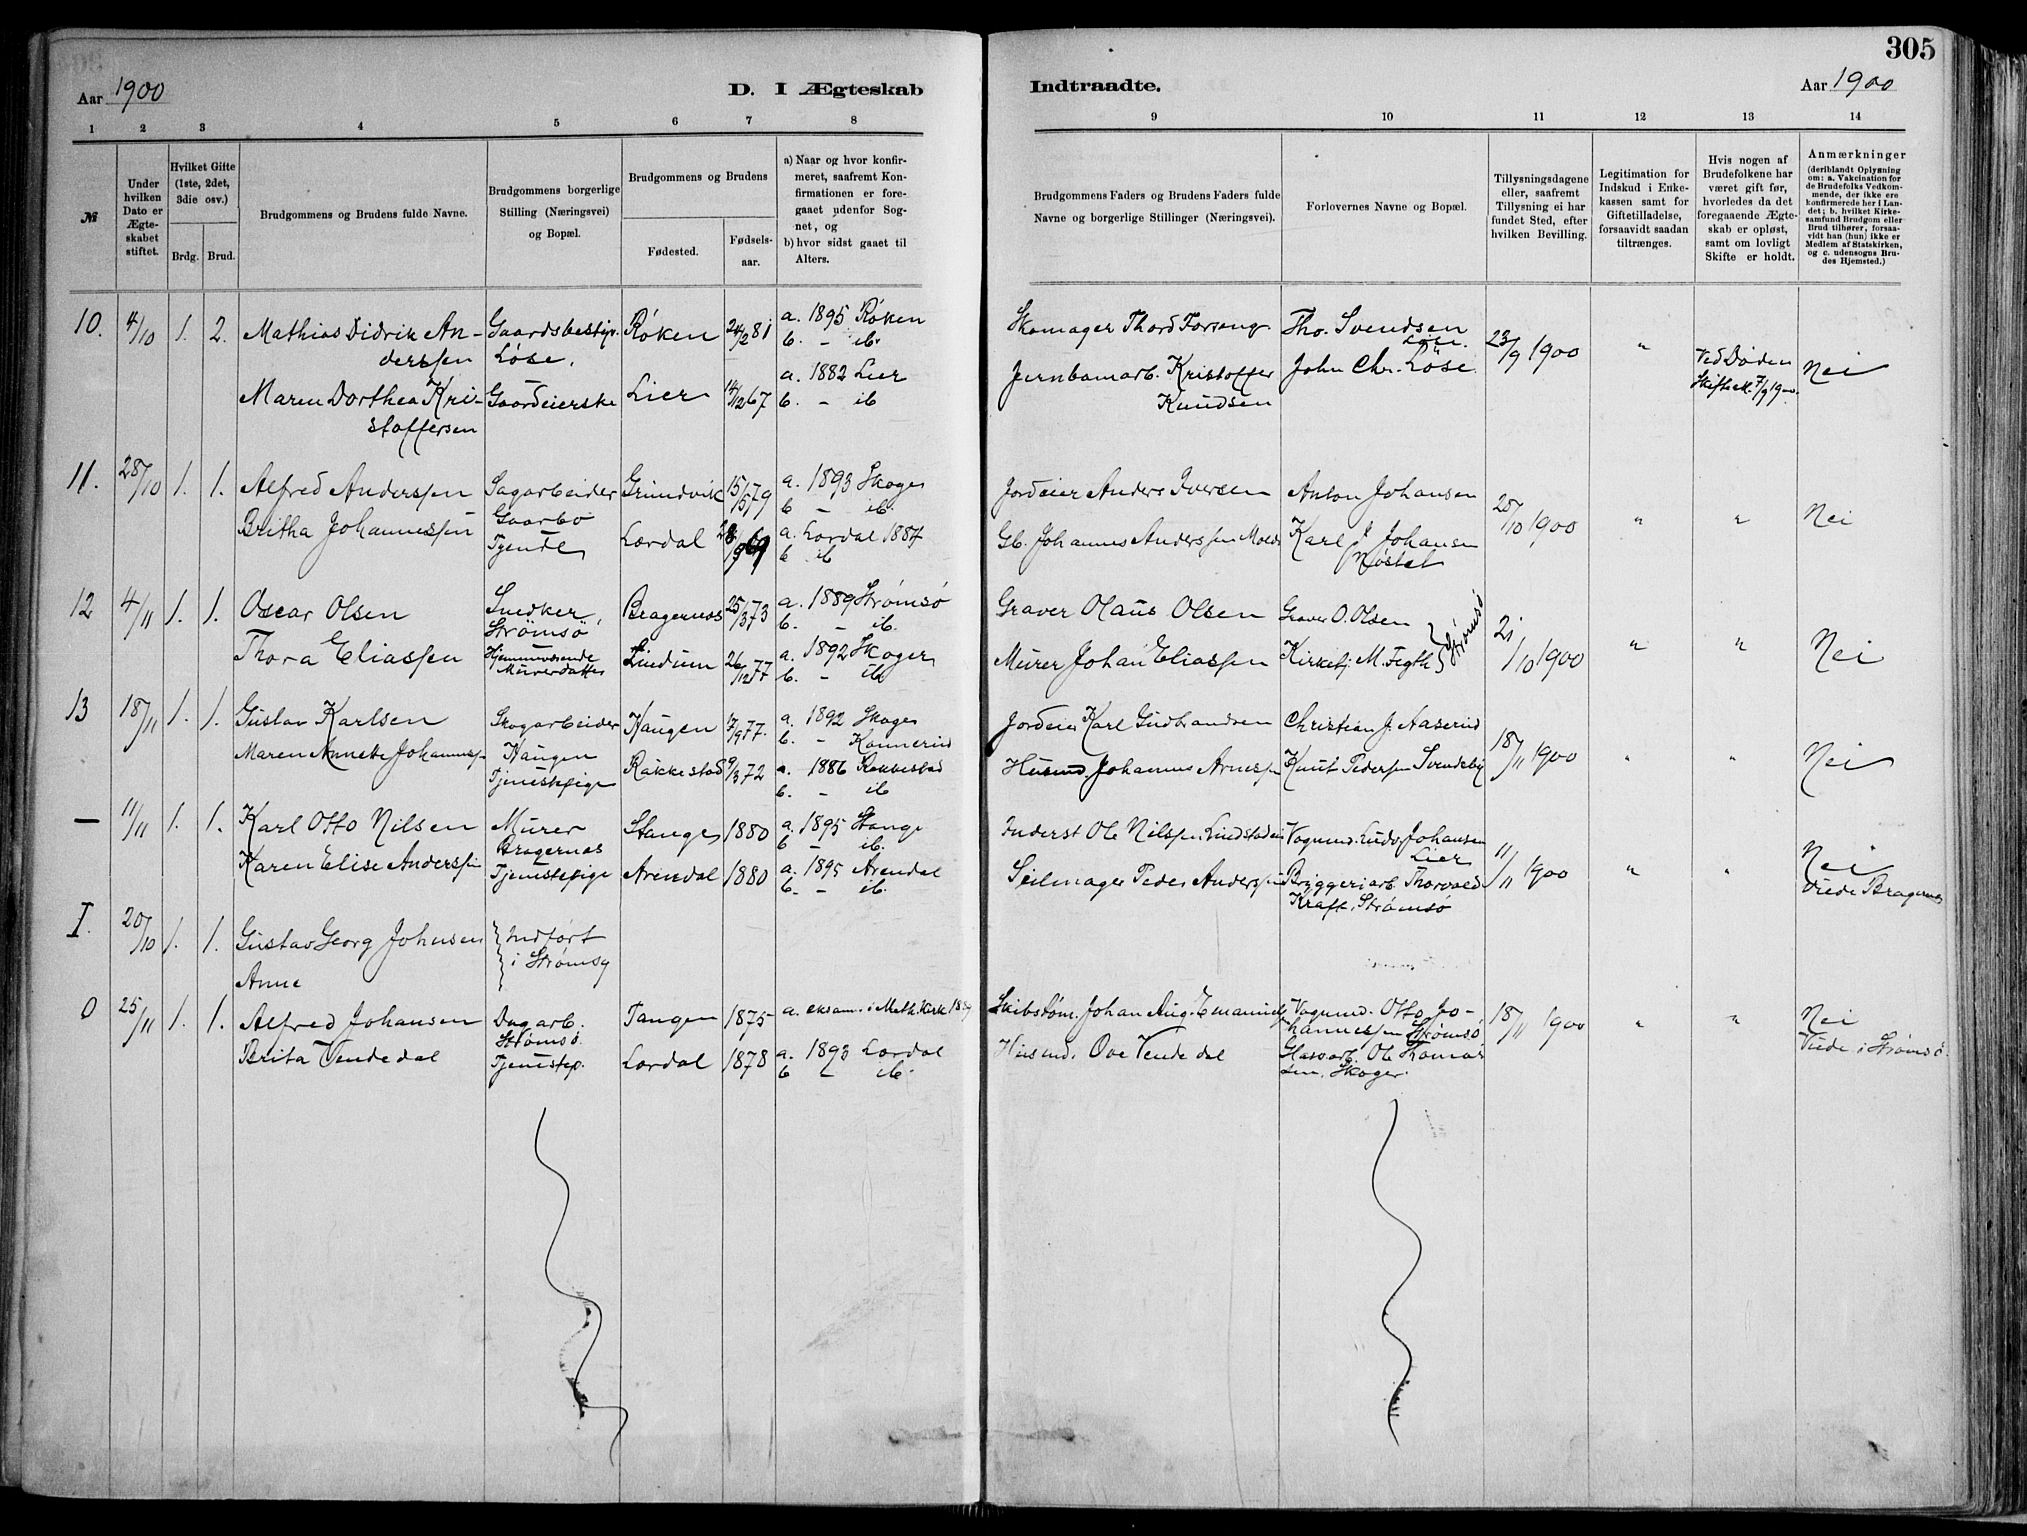 305
Aar 1900
D. I Ægteskab
Indtraadte.
Aar 1900
1 2 3 4 5 6 7 8 9 10 11 12 13 14
№
Under hvilken Dato er Ægte-skabet stiftet.
Hvilket Gifte (1ste, 2det, 3die osv.)
Brdg. Brud.
Brudgommens og Brudens fulde Navne.
Brudgommens borgerlige Stilling (Næringsvei) og Bopæl.
Brudgommens og Brudens
Fødested. Fødsels-aar.
a) Naar og hvor konfir-
meret, saafremt Kon-
firmationen er fore-
gaaet udenfor Sog-
net, og
b) hvor sidst gaaet til
Alters.
Brudgommens Faders og Brudens Faders fulde
Navne og borgerlige Stillinger (Næringsvei).
Forlovernes Navne og Bopæl.
Tillysningsdagene
eller, saafremt
Tillysning ei har
fundet Sted, efter
hvilken Bevilling.
Legitimation for
Indskud i Enke-
kassen samt for
Giftetilladelse,
forsaavidt saadan
tiltrænges.
Hvis nogen af
Brudefolkene har
været gift før,
hvorledes da det
foregaaende Ægte-
skab er opløst,
samt om lovligt
Skifte er holdt.
Anmærkninger
(deriblandt Oplysning
om: a. Vakcination for
de Brudefolks Vedkom-
mende, der ikke ere
konfirmerede her i Lan-
det; b. hvilket Kirke-
samfund Brudgom eller
Brud tilhører, forsaa-
vidt han (hun) ikke er
Medlem af Statskirken,
og c. udensogns Bru-
des Hjemsted.)
10. 4/10 1. 2. Mathias Didrik An- Gaardsbestyr. Røken 24/2 81 a. 1895 Røken Skomager Thord Forsang Tho. Svendsen 23/9 1900 " Ved Døden Nei
derssen Løse. b. – ib. Lier.
Maren Dorthea Kri- Gaardeierske Lier 14/12 67 a. 1882 Lier Jernbanarb. Kristoffer John Chr. Løse Skifte 7/9 1900.
stoffersen b. – ib Knudsen
11. 28/10 1. 1. Alfred Anderssen Sagarbeider Grimdvik 15/5 79 a. 1893 Skoger Jordeier Anders Iversen Anton Johansen 20/10 1900 " " Nei
Gaarbo b – ib.
Britha Johannessen Tyende Lærdal 69 a. Lærdal 1884 Gb. Johannes Anderssen Karl J Johansen
b ib Nøstet
12 4/11 1. 1. Oscar Olsen Snedker, Bragernæs 25/3 73 a. 1889 Strømsø Graver Olaus Olsen Graver O. Olsen Strømsø 21/10 1900 " " Nei
Strømsø b. – ib.
Thora Eliassen Hjemmeværende Lindum 26/12 77 a. 1892 Skoger Murer Johan Eliassen Kirketj. M. Fegth
Murerdatter b. – ib
13 18/11 1. 1. Gustav Karlsen Skogarbeider Haugen 7/9 77. a. 1892 Skoger Jordeier Karl Gudbrandsen Christian J. Aaserud 18/11 1900 " " Nei
Haugen b. – Konnerud
Maren Annette Johanness- Tjenestepige Rakkestad 9/3 72 a. 1886 Rakkestad Husmd. Johannes Arnessen Knut Pedersen Svendsby
b. – ib
– 11/11 1. 1. Karl Otto Nilsen Murer Stange 1880 a. 1895 Stange Inderst Ole Nilssen, Lindstaden Vognmd. Ludv Johansen 11/11 1900 " " Nei
Bragernæs b – ib. Lier
Karen Elise Anderssen Tjenestepige Arendal 1880 a. 1895 Arendal Seilmager Peder Anderssen Bryggeriarb. Thorvald Viede Bragernæs
b. – ib. Kraft, Strømsø
I. 20/10 1. 1. Gustav Georg Johnsen Indført
i Strømsø
Anne
0 25/11 1. 1. Alfred Johansen Dagarb. Tangen 1875 a. eksam. i Meth. Kirk Skibstøm. Johan Aug. Emanuels Vognmd. Otto Jo- 18/11 1900 " " Nei
Strømsø. hannessen Strømsø
Brita Vendedal Tjenestep. Lærdal 1878 a. 1893 Lærdal Husmd. Ove Vendedal Glasarb. Ole Thomas Viede i Strømsø.
b – ib. sen. Skoger.